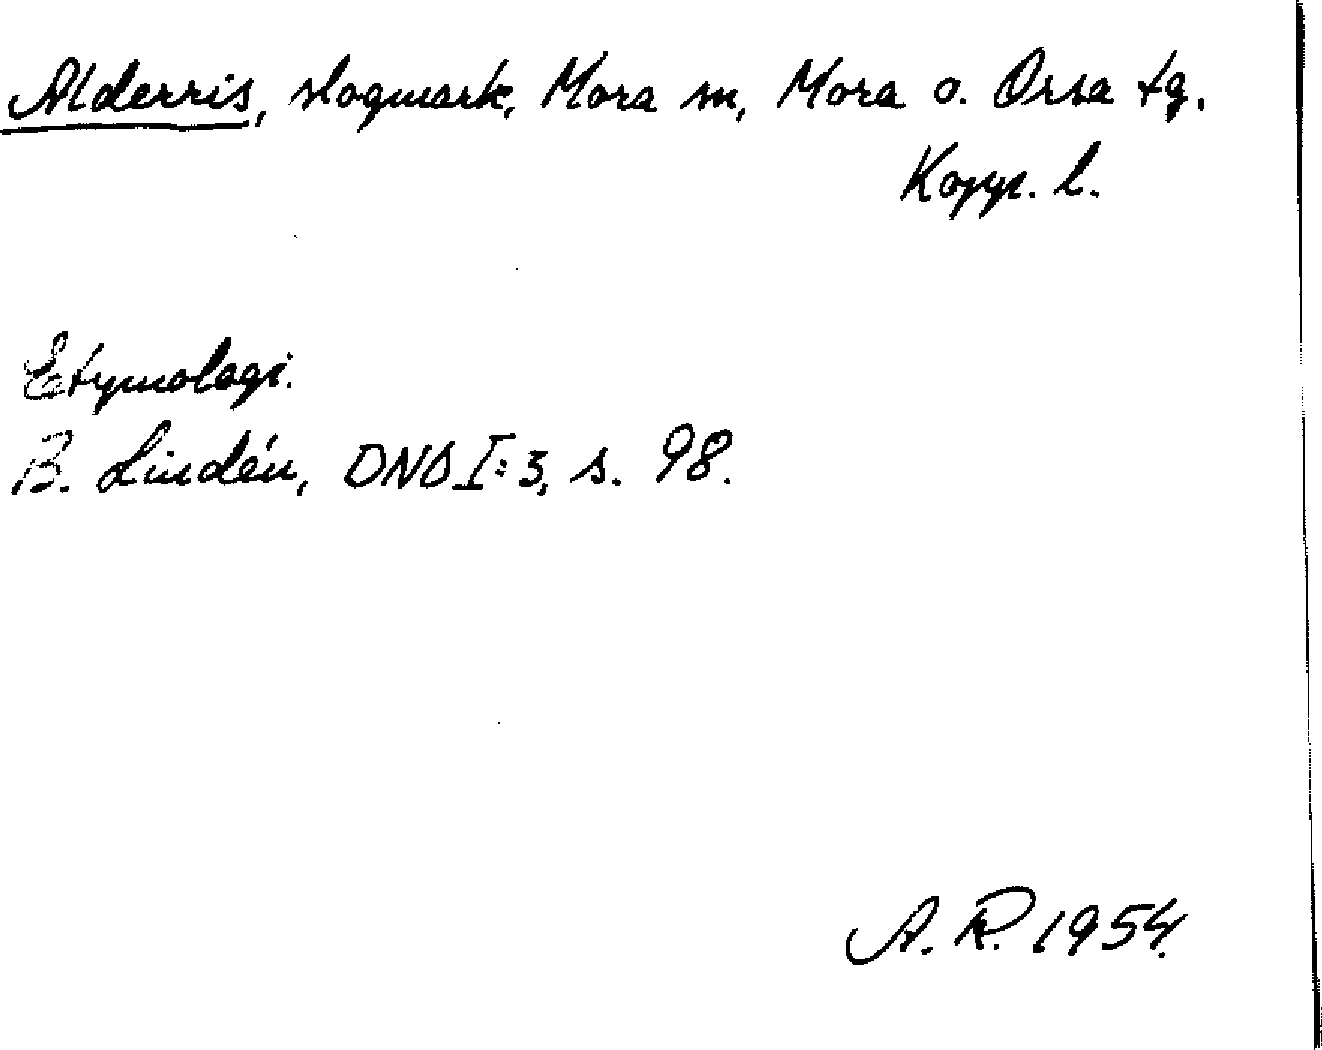 Alderris, slogmark, Mora sn, Mora o. Orsa tg.
Kopp. l.
Etymologi.
B. Lindén, DNO I:3, s. 98.
A. R. 1954.